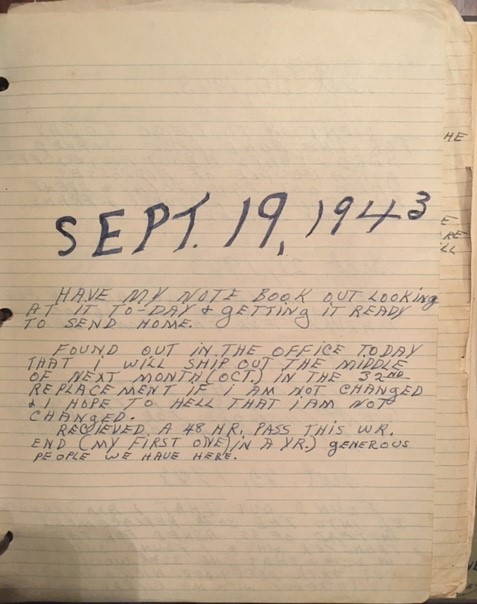 SEPT. 19, 1943
HAVE MY NOTE BOOK OUT LOOKING
AT IT TO-DAY & GETTING IT READY
TO SEND HOME.
FOUND OUT IN THE OFFICE TODAY
THAT I WILL SHIP OUT THE MIDDLE
OF NEXT MONTH (OCT.) IN THE 32ND
REPLACEMENT IF I AM NOT CHANGED
& I HOPE TO HELL THAT I AM NOT
CHANGED.
RECIEVED A 48 HR. PASS THIS WK.
END (MY FIRST ONE) IN A YR.) GENEROUS
PEOPLE WE HAVE HERE.
HE
E
RE
LL